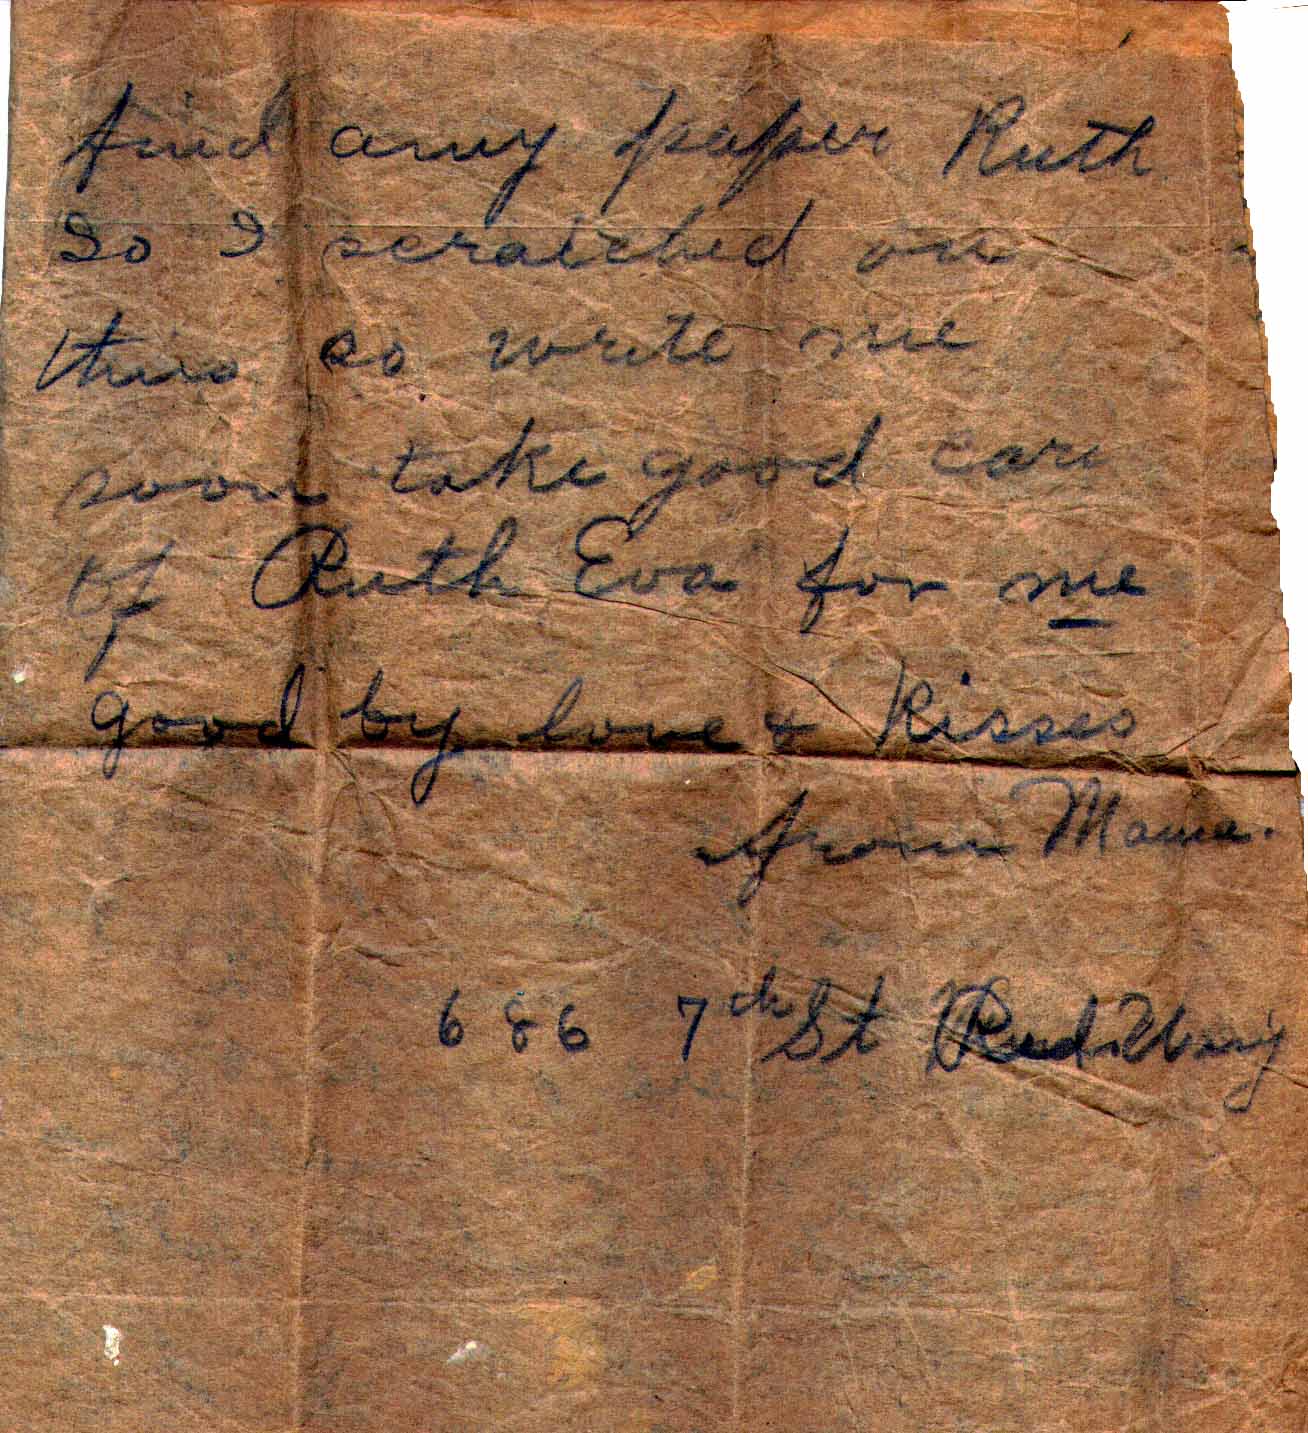 find any paper Ruth
So I scratched on
this so write me
soon take good care
of Ruth Eva for me
good by love & Kisses
from Mama.
686 7th St